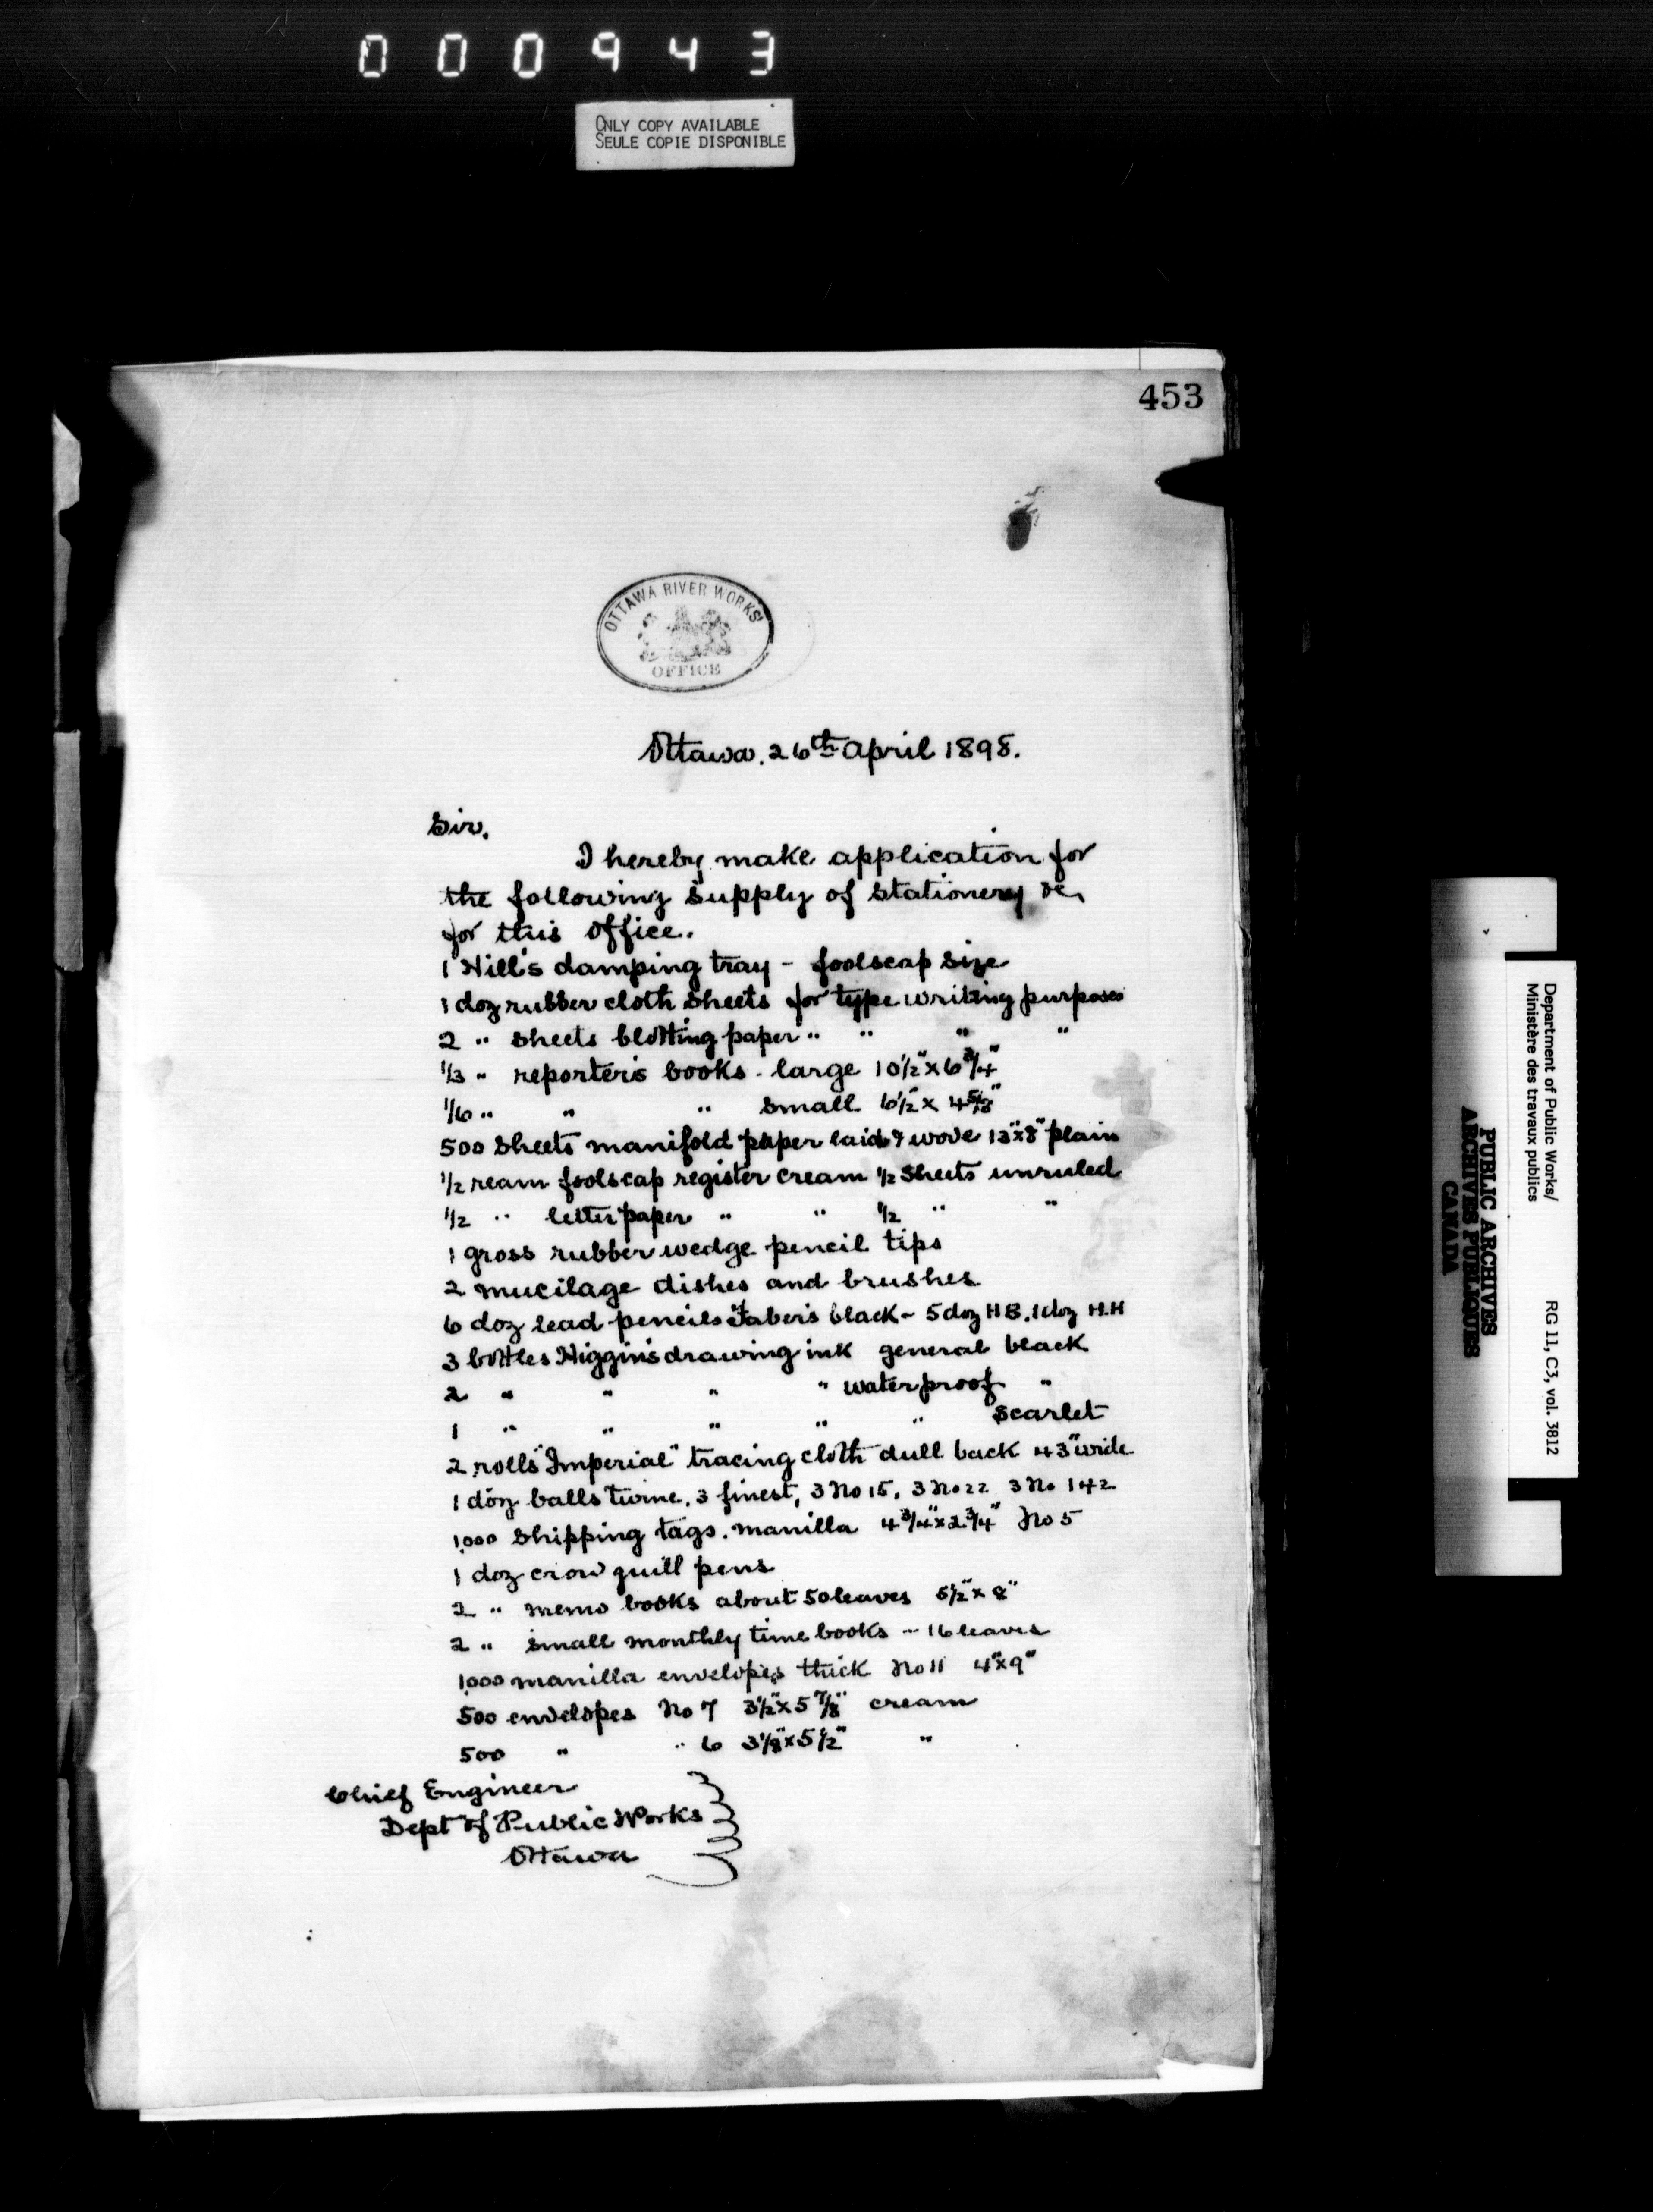 000943
ONLY COPY AVAILABLE
SEULE COPIE DISPONIBLE
453
OTTAWA RIVER WORKS
OFFICE
Ottawa. 26th April 1898.
Sir,
I hereby make application for
the following supply of stationery &c,
for this office.
1 Hill's damping tray - foolscap size
1 doz rubber cloth sheets for type writing purposes
2 " sheets blotting paper " " " "
1/3 " reporter's books - large 10½" x 6¾"
1/6 " " " small 6½" x 4⅝"
500 sheets manifold paper laid & wove 13" x 8" plain
½ ream foolscap register cream ½ sheets unruled
½ " letter paper " " ½ " "
1 gross rubber wedge pencil tips
2 mucilage dishes and brushes
6 doz lead pencils Faber's black - 5 doz HB. 1 doz H.H
3 bottles Higgin's drawing ink general black
2 " " " " waterproof "
1 " " " " " scarlet
2 rolls "Imperial" tracing cloth dull back 43" wide
1 doz balls twine. 3 finest, 3 No 15, 3 No 22 3 No 142
1,000 shipping tags. manilla 4¾" x 2¾" No 5
1 doz crow quill pens
2 " memo books about 50 leaves 5½" x 8"
2 " small monthly time books - 16 leaves
1,000 manilla envelopes thick No 11 4" x 9"
500 envelopes No 7 3½" x 5⅞" cream
500 " " 6 3⅛" x 5½" "
Chief Engineer
Dept of Public Works
Ottawa
Department of Public Works/
Ministère des travaux publics
RG 11, C3, vol. 3812
PUBLIC ARCHIVES
ARCHIVES PUBLIQUES
CANADA